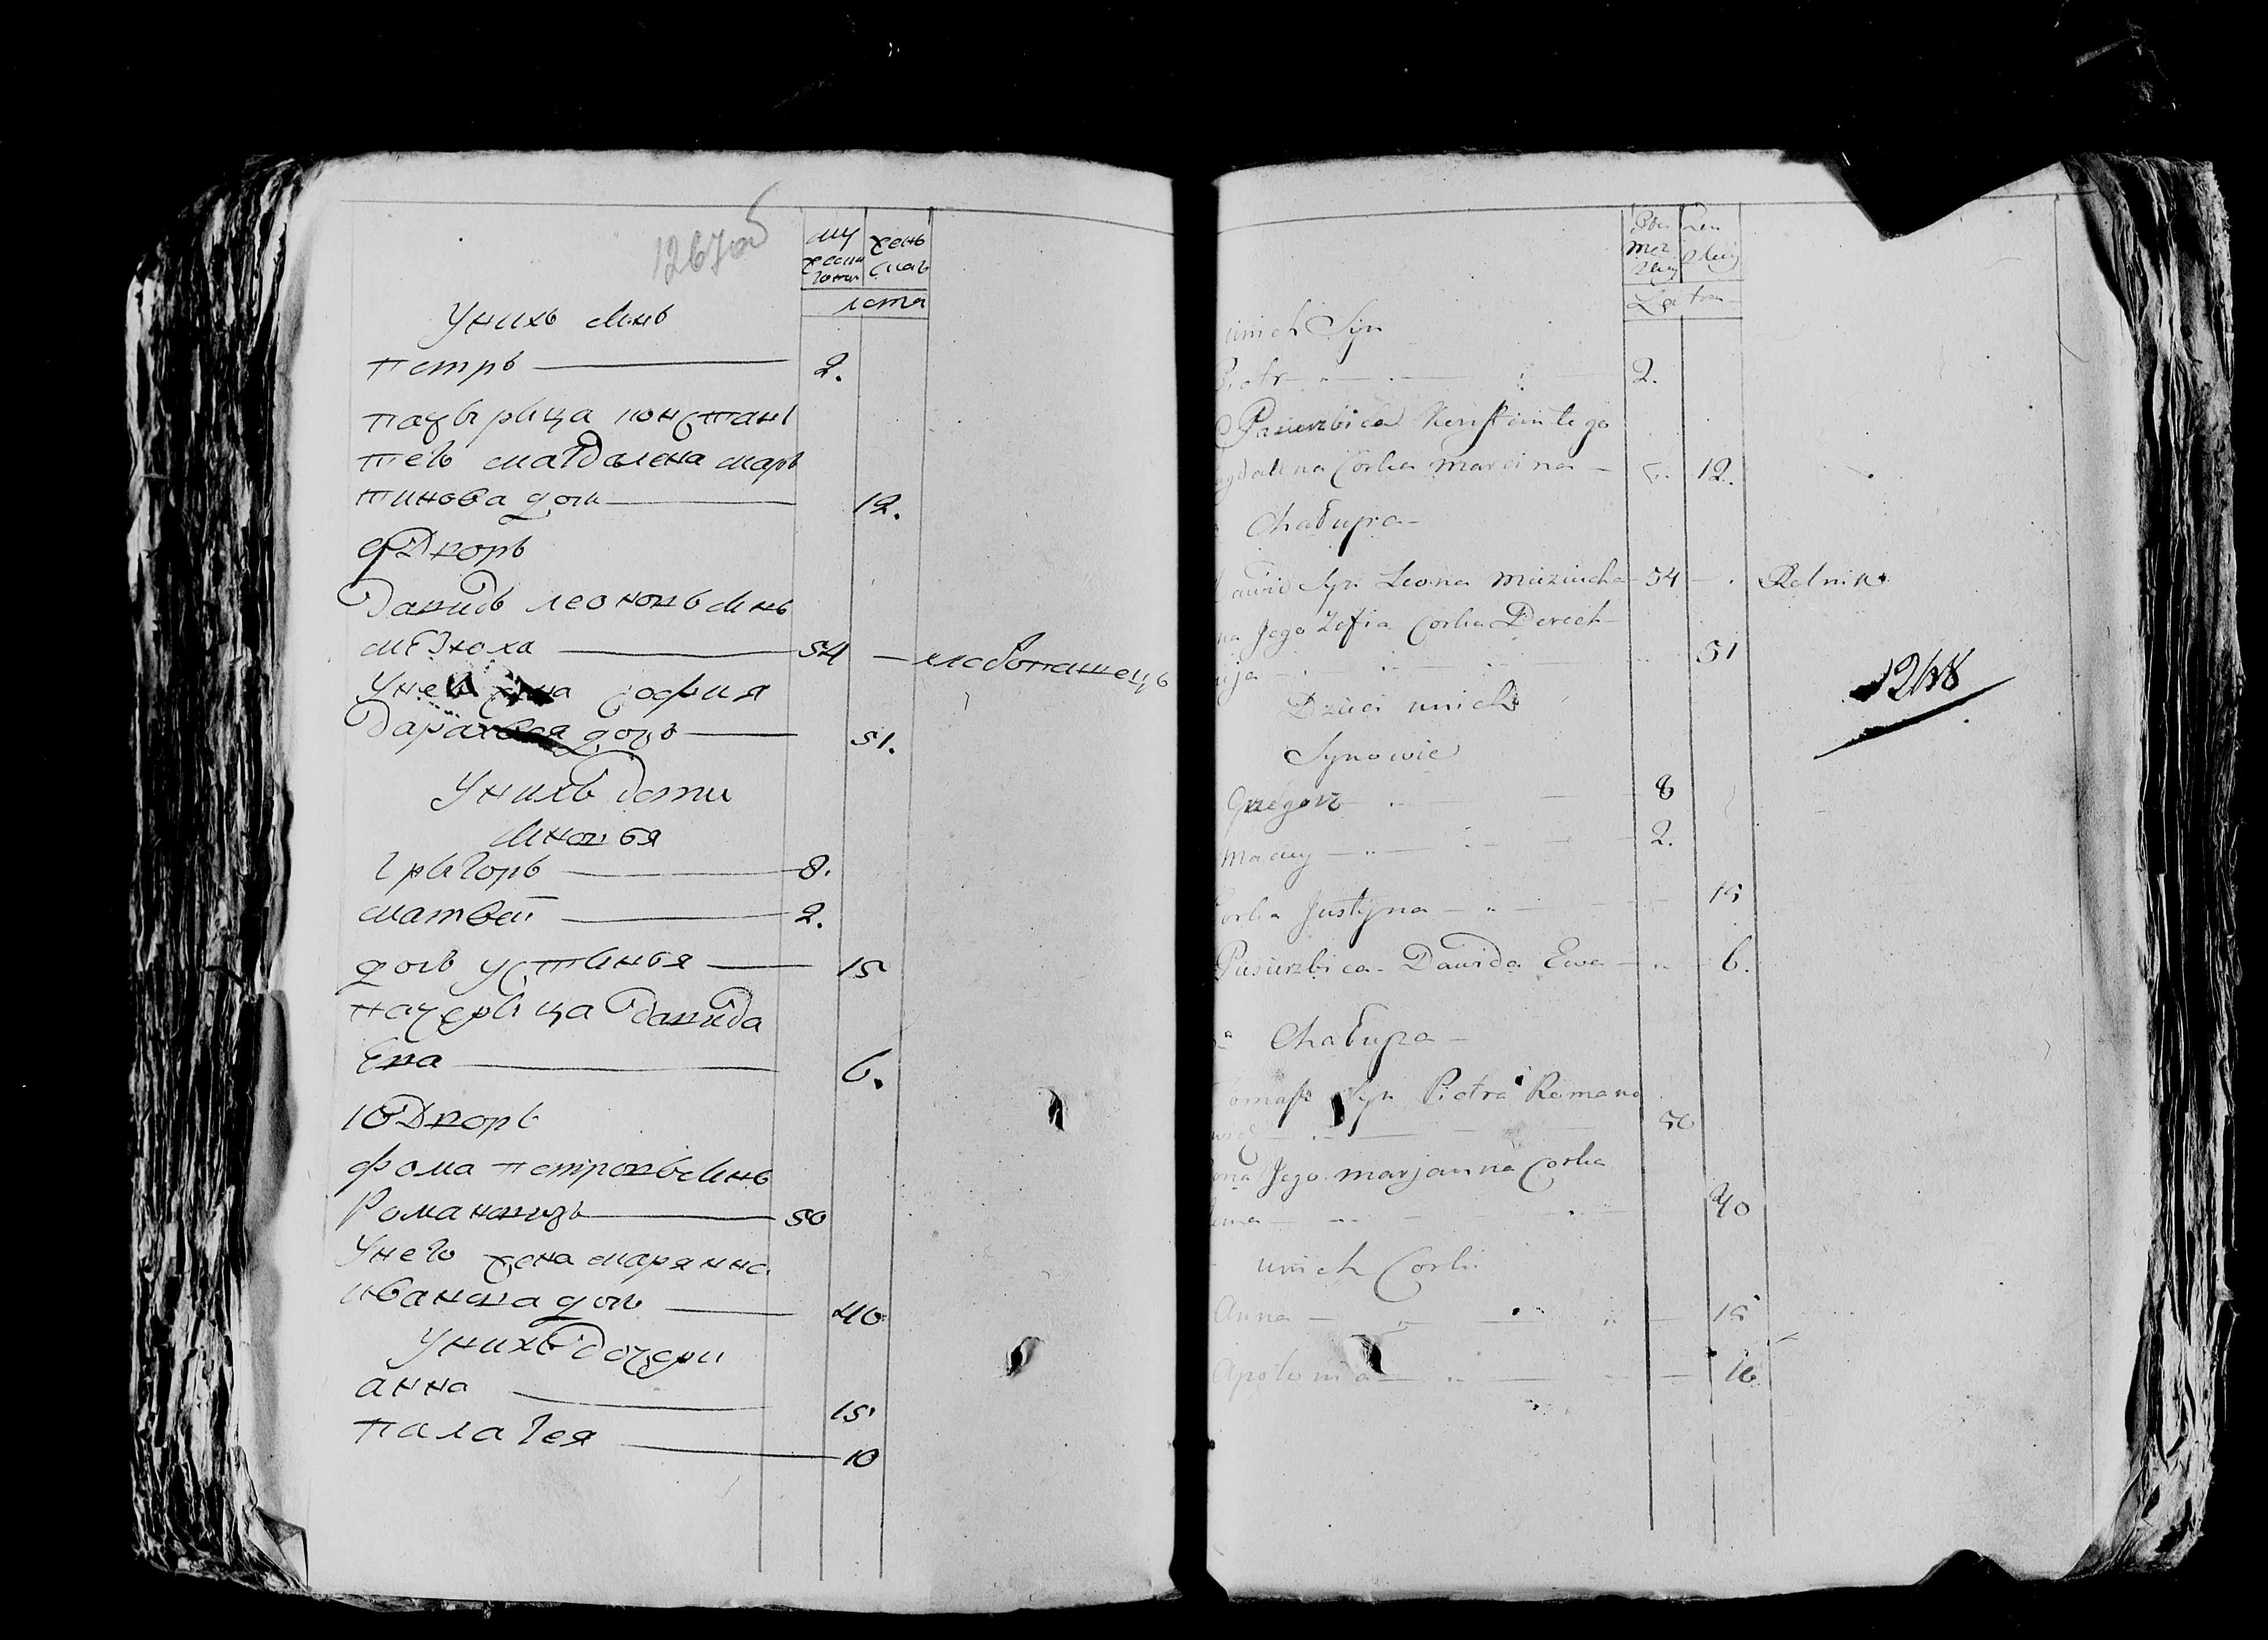 1267об
му
жеска
женъ
скаго
лета
У нихъ сынъ
петръ 2.
падчерица констан
тего магдалена мар
тинова дочь 12.
9 Дворъ
Давидъ леоновъ сынъ
мизюха 54
У него жена софия
дочь 51.
У нихъ дети
сыновья
григоръ 8.
матвей 2.
дочь устинья 15
падчерица давида
Ева 6.
10 Дворъ
фома петровъ сынъ
Романовичъ 50
У него жена марянна
иванова дочь 40
У нихъ дочери
анна 15
палагея 10
Letra
unich Syn
Piotr 2.
Pasierzbica Konstantego
gdalena Corka Marcina 12.
Chałupa
awid Syn Leona Miziucha 54 Rolnik
na Jego Zofia Corka Doroch
51
1268
Dzieci unich
Synowie
Grzegorz 8
Maciey 2.
orka Justyna 15
Pasierzbica Dawida Ewa 6.
Chałupa
Tomasz Syn Piotra Romano
wicz 50
ona Jego Marjanna Corka
40
unich Corki
Anna 15
Apolonia 10